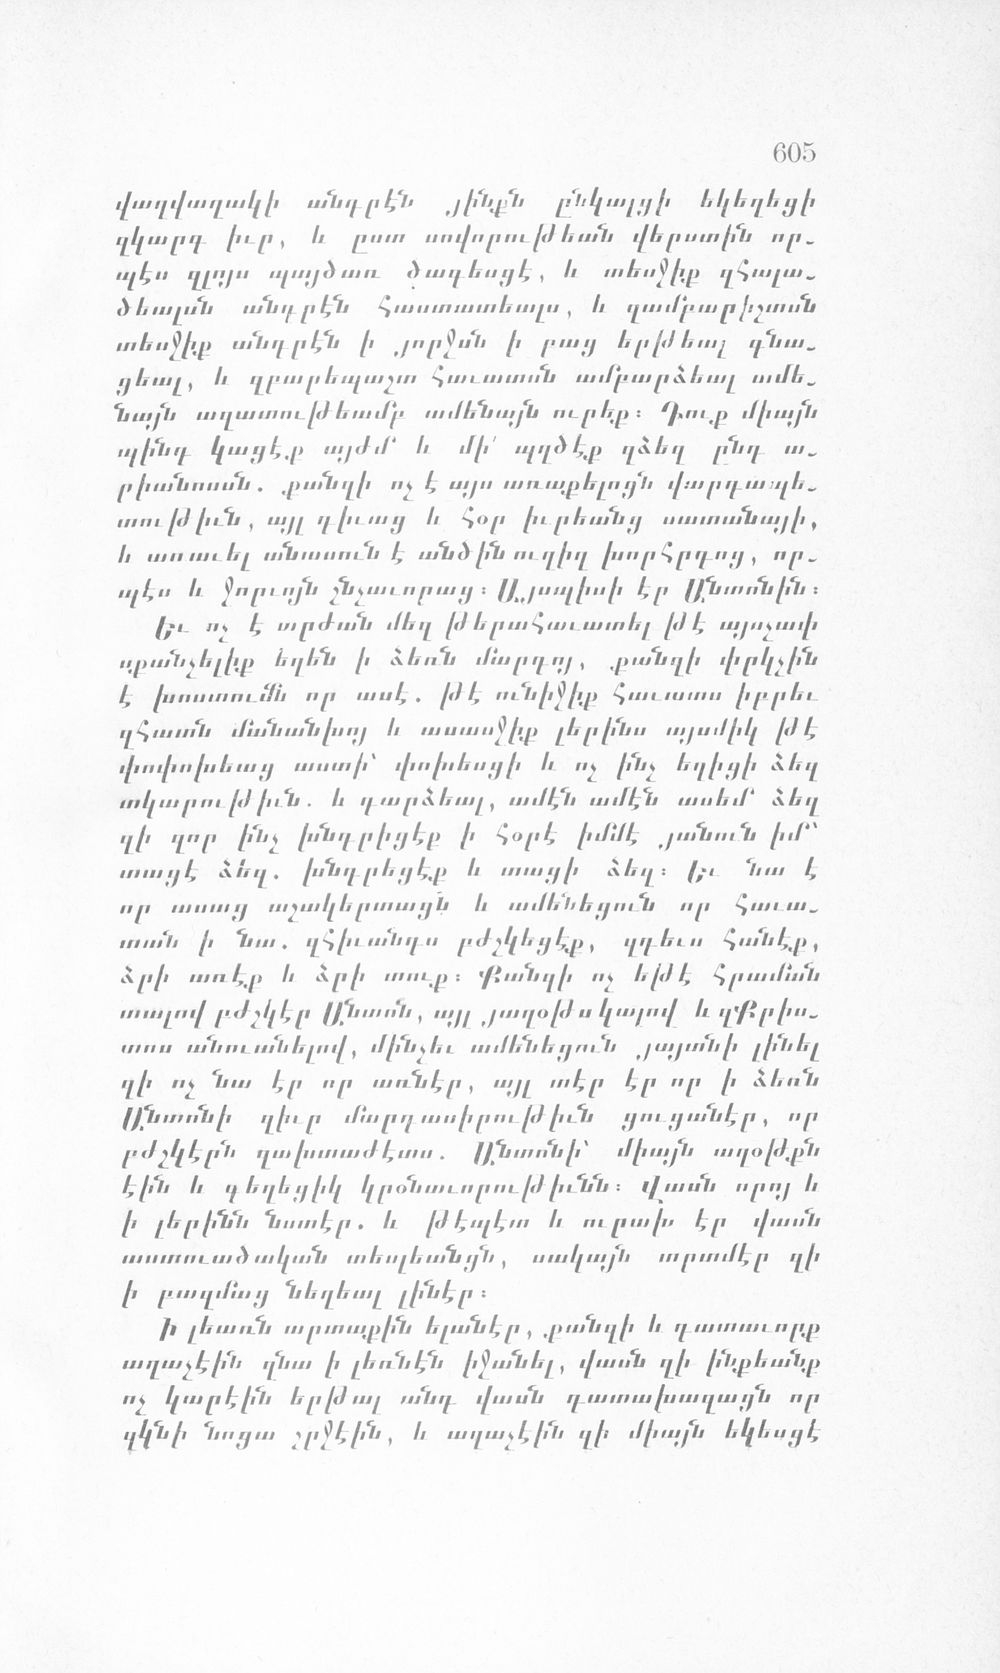 605
վաղվաղակի անդրէն յինքն ընկալցի եկեղեցի
զկարգ իւր, և ըստ սովորութեան վերստին որ֊
պէս զլոյս պայծառ ծագեսցէ, և տեսջիք զհալա֊
ծեալսն անդրէն հաստատեալս, և զամբարիշտսն
տեսջիք անդրէն ի յորջսն ի բաց երթեալ գնա֊
ցեալ, և զբարեպաշտ հաւատսն ամբարձեալ ամե֊
նայն ազատութեամբ ամենայն ուրեք։ Դուք միայն
պինդ կացէք այժմ և մի՛ պղծէք զձեզ ընդ ա֊
րիանոսսն. քանզի ոչ է այս առաքելոցն վարդապե֊
տութիւն, այլ դիւաց և հօր իւրեանց սատանայի,
և առաւել անասուն է անծին ուղիղ խորհրդոց, որ֊
պէս և ջորւոյն շնչաւորաց։ Այսպիսի էր Անտոնին։
Եւ ոչ է արժան մեզ թերահաւատել թէ այսչափ
սքանչելիք եղեն ի ձեռն մարդոյ, քանզի փրկչին
է խոստումն որ ասէ. թէ ունիջիք հաւատս իբրեւ
զհատն մանանխոյ և ասասջիք լերինս այսմիկ թէ
փոփոխեաց աստի՝ փոխեսցի և ոչ ինչ եղիցի ձեզ
տկարութիւն. և դարձեալ, ամէն ամէն ասեմ ձեզ
զի զոր ինչ խնդրիցէք ի հօրէ իմմէ յանուն իմ՝
տացէ ձեզ. խնդրեցէք և տացի ձեզ։ Եւ նա է
որ ասաց աշակերտացն և ամենեցուն որ հաւա֊
տան ի նա. զհիւանդս բժշկեցէք, զդեւս հանէք,
ձրի առէք և ձրի տուք։ Քանզի ոչ եթէ հրաման
տալով բժշկէր Անտոն, այլ յաղօթս կալով և զՔրիս֊
տոս անուանելով, մինչեւ ամենեցուն յայտնի լինել
զի ոչ նա էր որ առնէր, այլ տէր էր որ ի ձեռն
Անտոնի զիւր մարդասիրութիւն ցուցանէր, որ
բժշկէրն զախտաժէտս. Անտոնի՝ միայն աղօթքն
էին և գեղեցիկ կրօնաւորութիւնն։ Վասն որոյ և
ի լերինն նստէր. և թէպէտ և ուրախ էր վասն
աստուածական տեսլեանցն, սակայն տրտմէր զի
ի բազմաց նեղեալ լինէր։
Ի լեառն արտաքին ելանէր, քանզի և դատաւորք
աղաչէին զնա ի լեռնէն իջանել, վասն զի ինքեանք
ոչ կարէին երթալ անդ վասն դատախազացն որ
զկնի նոցա շրջէին, և աղաչէին զի միայն եկեսցէ